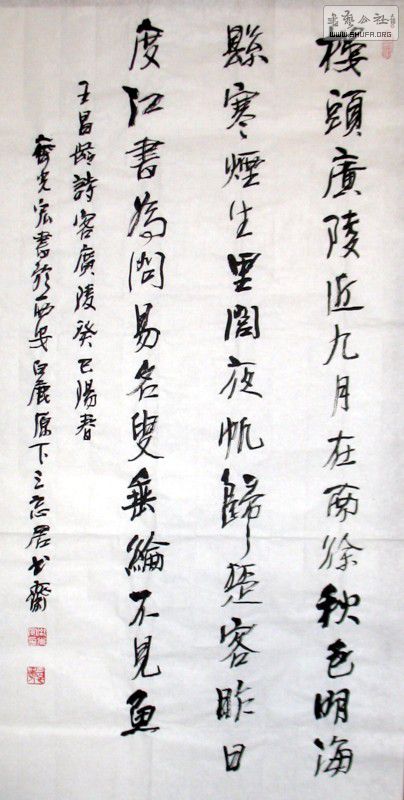 書藝公社
WWW.SHUFA.ORG
樓頭廣陵近九月在南徐秋色明海
縣寒煙生里閭夜帆歸楚客昨日
度江書為問易名叟垂綸不見魚
王昌齡詩客廣陵癸巳陽春
齊光宏書於西安白鹿原下三忘居书齋